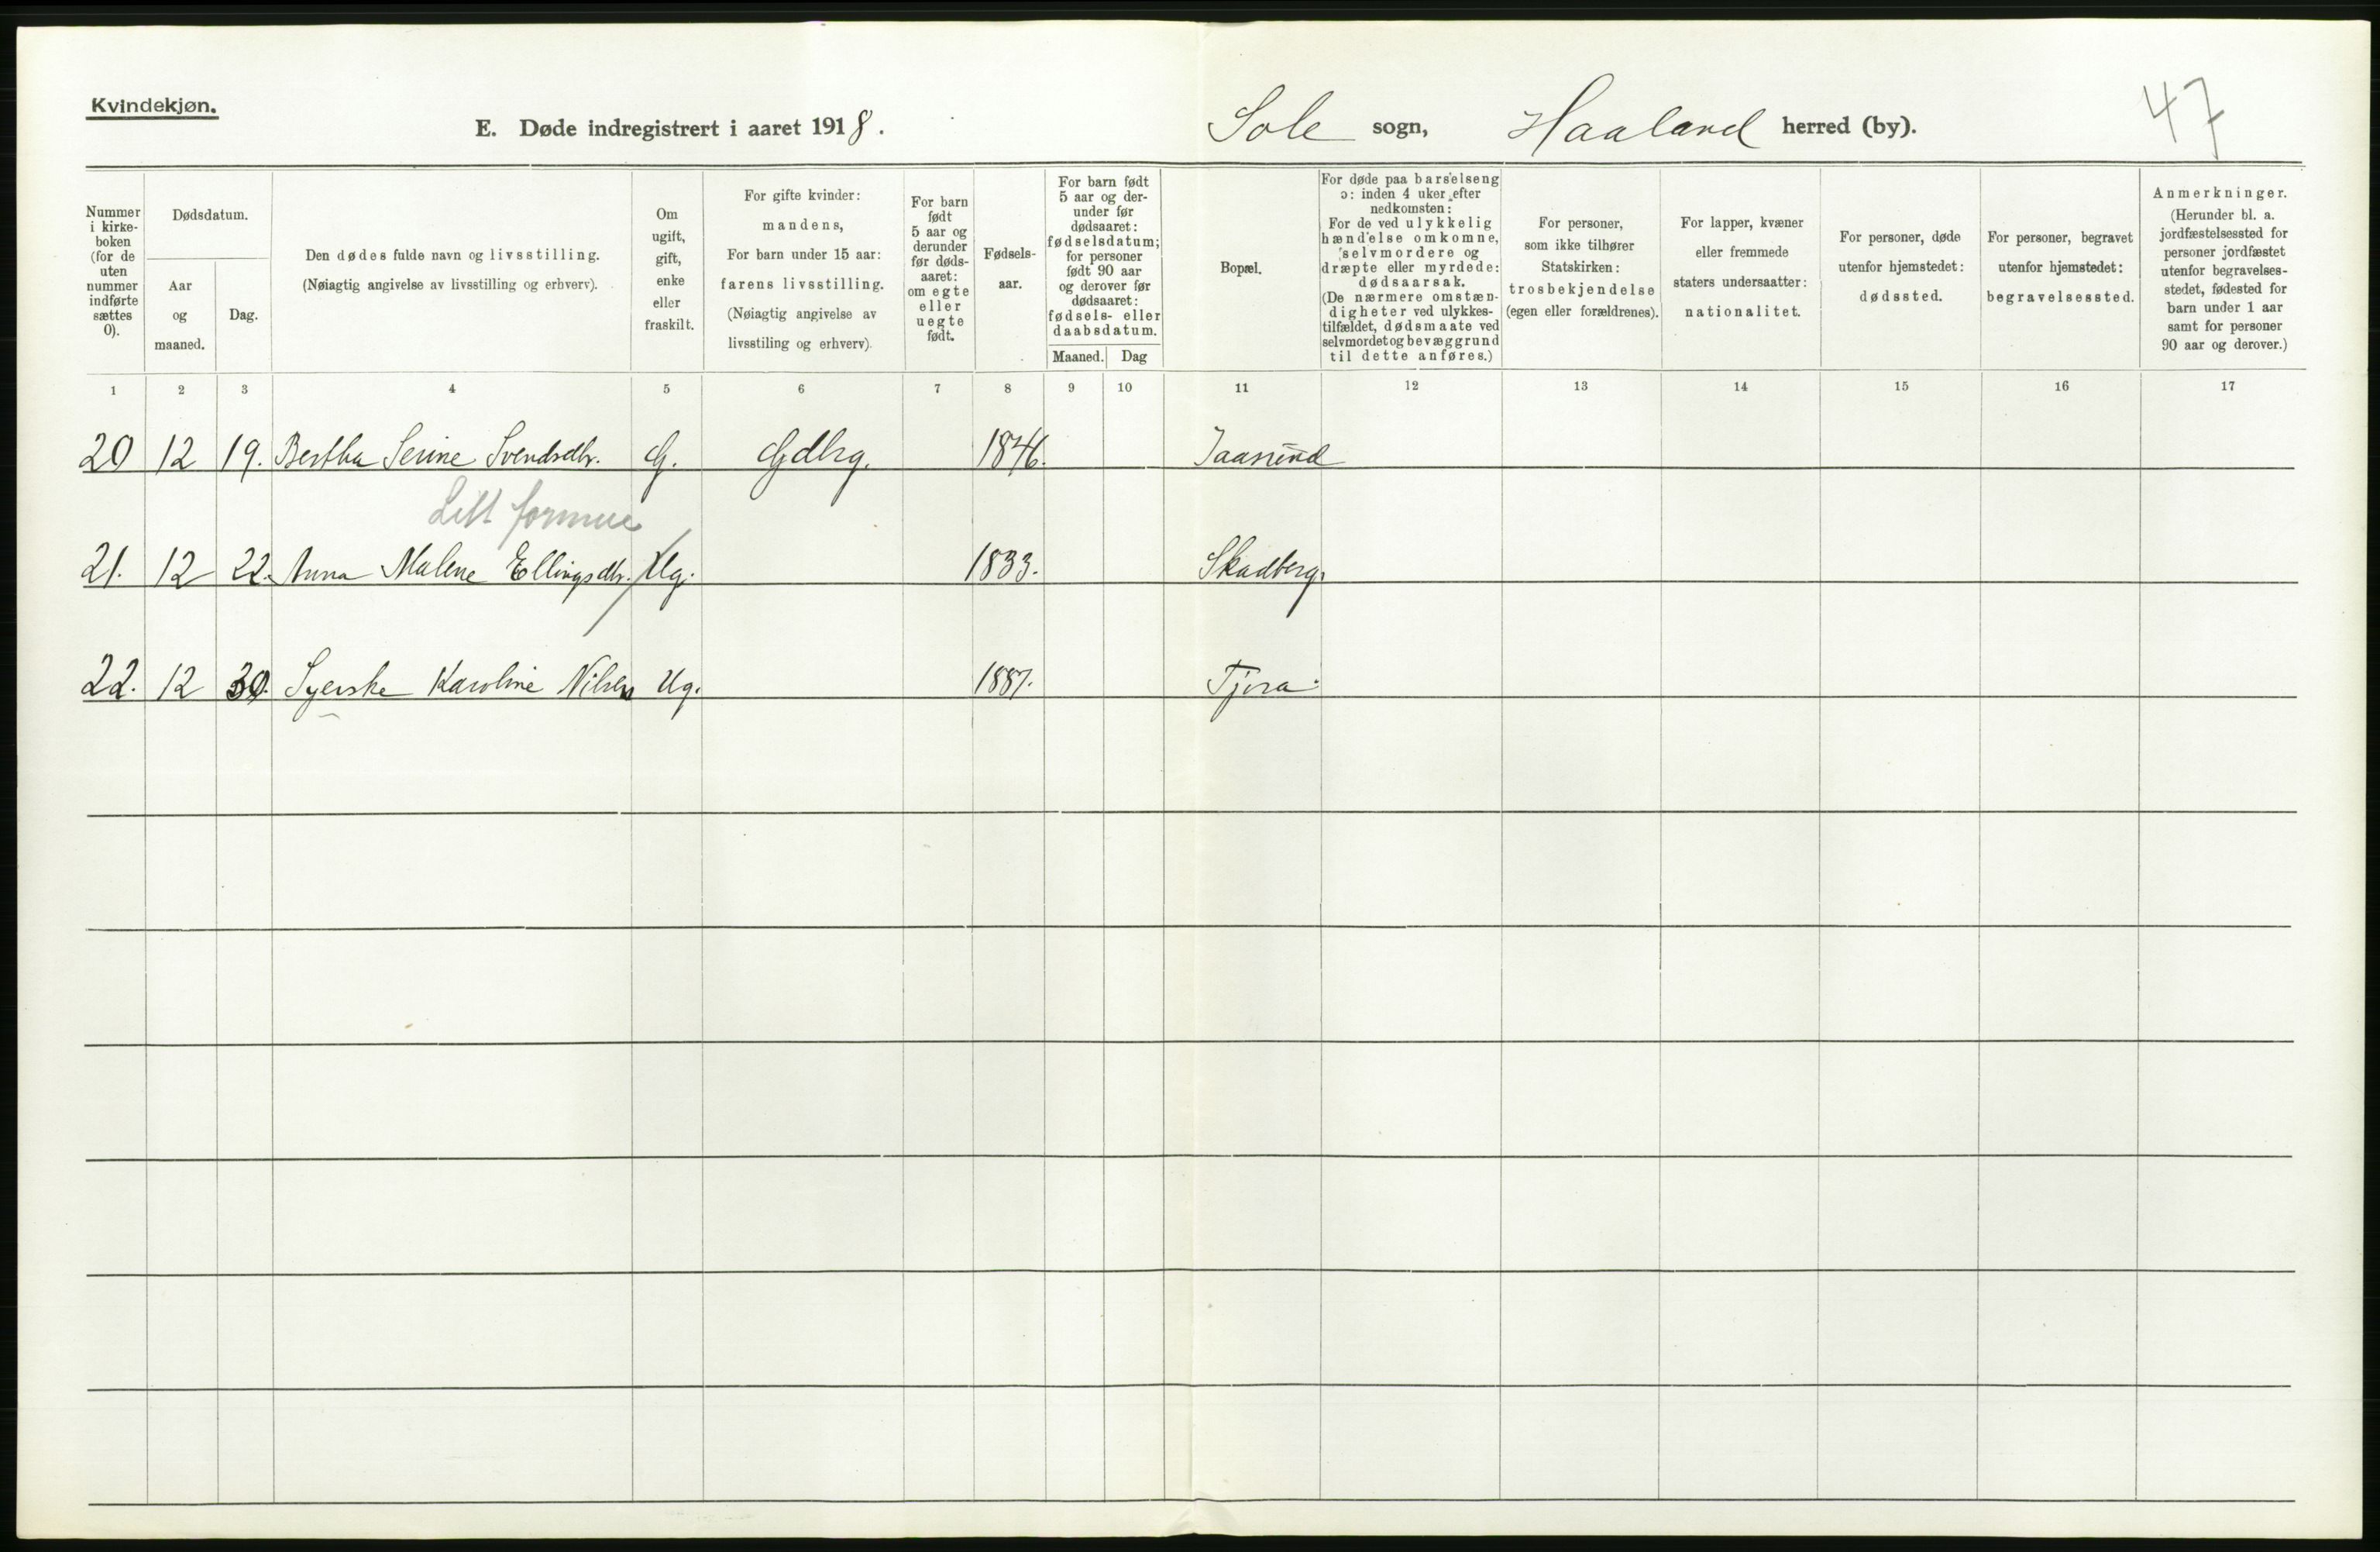 Kvindekjøn.
E. Døde indregistrert i aaret 1918.
Sole sogn, Haaland herred (by).
47
Nummer i kirke-boken (for de uten nummer indførte sættes 0).
Dødsdatum.
Aar og maaned.
Dag.
Den dødes fulde navn og livsstilling.
(Nøiagtig angivelse av livsstilling og erhverv).
Om ugift, gift, enke eller fraskilt.
For gifte kvinder: mandens,
For barn under 15 aar: farens livsstilling.
(Nøiagtig angivelse av livsstiling og erhverv).
For barn født 5 aar og derunder før døds-aaret: om egte eller uegte født.
Fødsels-aar.
For barn født 5 aar og der-under før dødsaaret: fødselsdatum; for personer født 90 aar og derover før dødsaaret: fødsels- eller daabsdatum.
Maaned.
Dag
Bopæl.
For døde paa barselseng ɔ: inden 4 uker efter nedkomsten:
For de ved ulykkelig hændelse omkomne, selvmordere og dræpte eller myrdede: dødsaarsak.
(De nærmere omstæn-digheter ved ulykkes-tilfældet, dødsmaate ved selvmordet og bevæggrund til dette anføres.)
For personer, som ikke tilhører Statskirken: trosbekjendelse (egen eller forældrenes).
For lapper, kvæner eller fremmede staters undersaatter: nationalitet.
For personer, døde utenfor hjemstedet: dødssted.
For personer, begravet utenfor hjemstedet: begravelsessted.
Anmerkninger.
(Herunder bl. a. jordfæstelsessted for personer jordfæstet utenfor begravelses-stedet, fødested for barn under 1 aar samt for personer 90 aar og derover.)
1 2 3 4 5 6 7 8 9 10 11 12 13 14 15 16 17
20 12 19. Bertha Serine Svendsdtr. G. Gdbrg. 1846. Jaasund
Litt formue
21. 12 22. Anna Malene Ellingsdtr. Ug. 1833. Skadberg.
22. 12 30. Syerske Karoline Nilsen Ug. 1887. Tjora